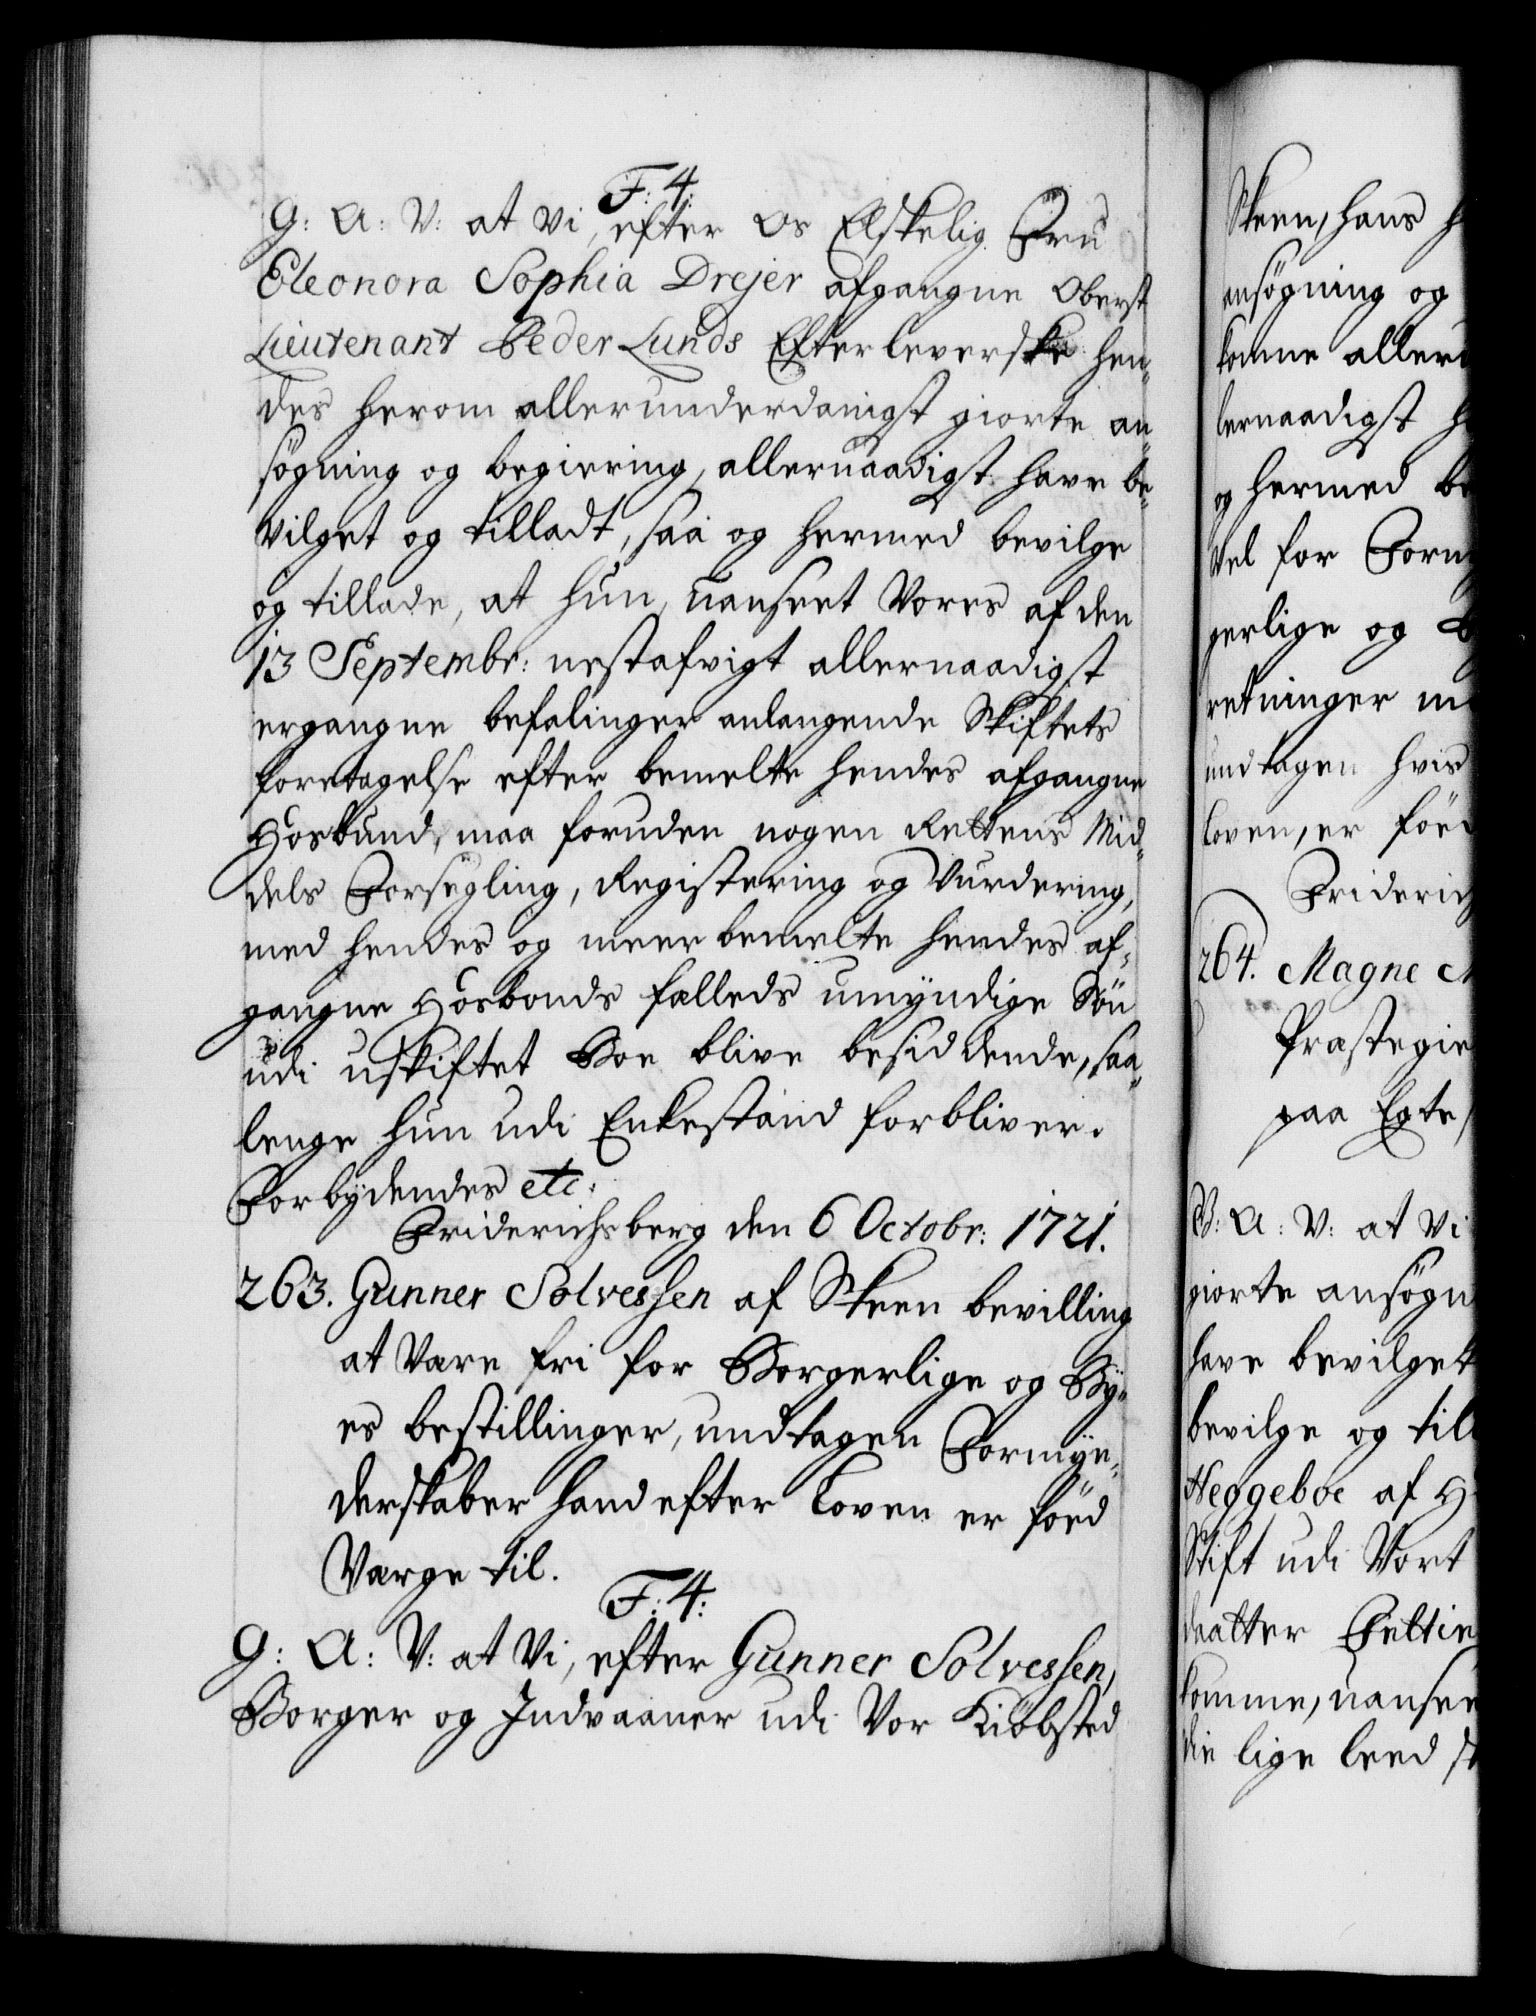 F: 4:
G: A: V: at Vi, efter Os Elskelig Fru
Eleonora Sophia Drejer afgangne Oberst
Lieutenant Peder Lunds Efterleverske hen„
des herom allerunderdanigst giorte an„
søgning og begiering, allernaadigst have be„
vilget og tilladt, saa og hermed bevilge
og tillade, at hun, uanseet Vores af den
13 Septembr: nestafvigt allernaadigst
ergangne befalinger anlangende Skiftets
foretagelse efter bemelte hendes afgangne
Hosbund, maa foruden nogen Rettens Mid„
dels Forsegling, Registering og Vurdering,
med hendes og meerbemelte hendes af„
gangne Hosbonds fælleds umyndige Søn
udi uskiftet Boe blive besiddende, saa„
lenge hun udi Enkestand forbliver.
Forbydendes etc:
Friderichsberg den 6 Octobr: 1721.
263. Gunner Solvessen af Skeen bevilling
at være fri for Borgerlige og By„
es bestillinger, undtagen Formyn„
derskaber hand efter Loven er föed
Værge til.
F: 4:
G: A: V: at Vi, efter Gunner Solvessen,
Borger og Indvaaner udi Vor Kiöbsted
Skeen, hans
ansøgning og
komme
og hermed
vel for
gerlige og
retninger
undtagen hvis
Loven, er
264. Magne
paa Egte
G: A: V: at Vi
giorte
have bevilgett
bevilge og
Heggeboe af
Stift udi Vort
daatter
komme,
die lige leed